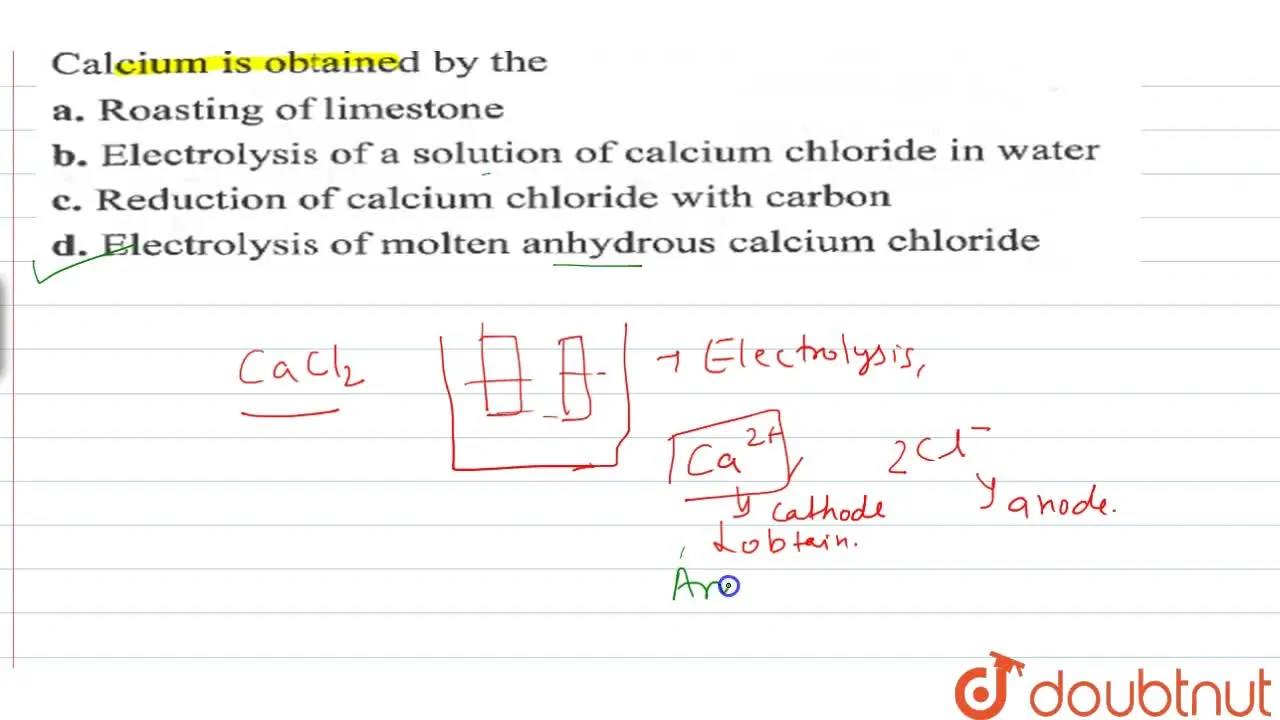 Calcium is obtained by the
a. Roasting of limestone
b. Electrolysis of a solution of calcium chloride in water
c. Reduction of calcium chloride with carbon
d. Electrolysis of molten anhydrous calcium chloride
CaCl2 → Electrolysis,
Ca2+ 2Cl-
cathode anode.
obtain.
doubtnut